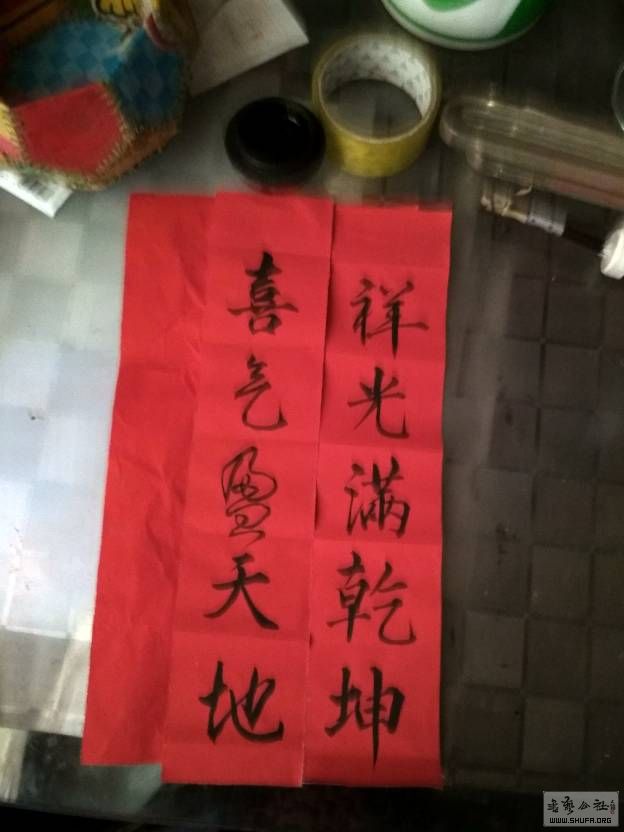 祥光满乾坤
喜气盈天地
WWW.SHUFA.ORG